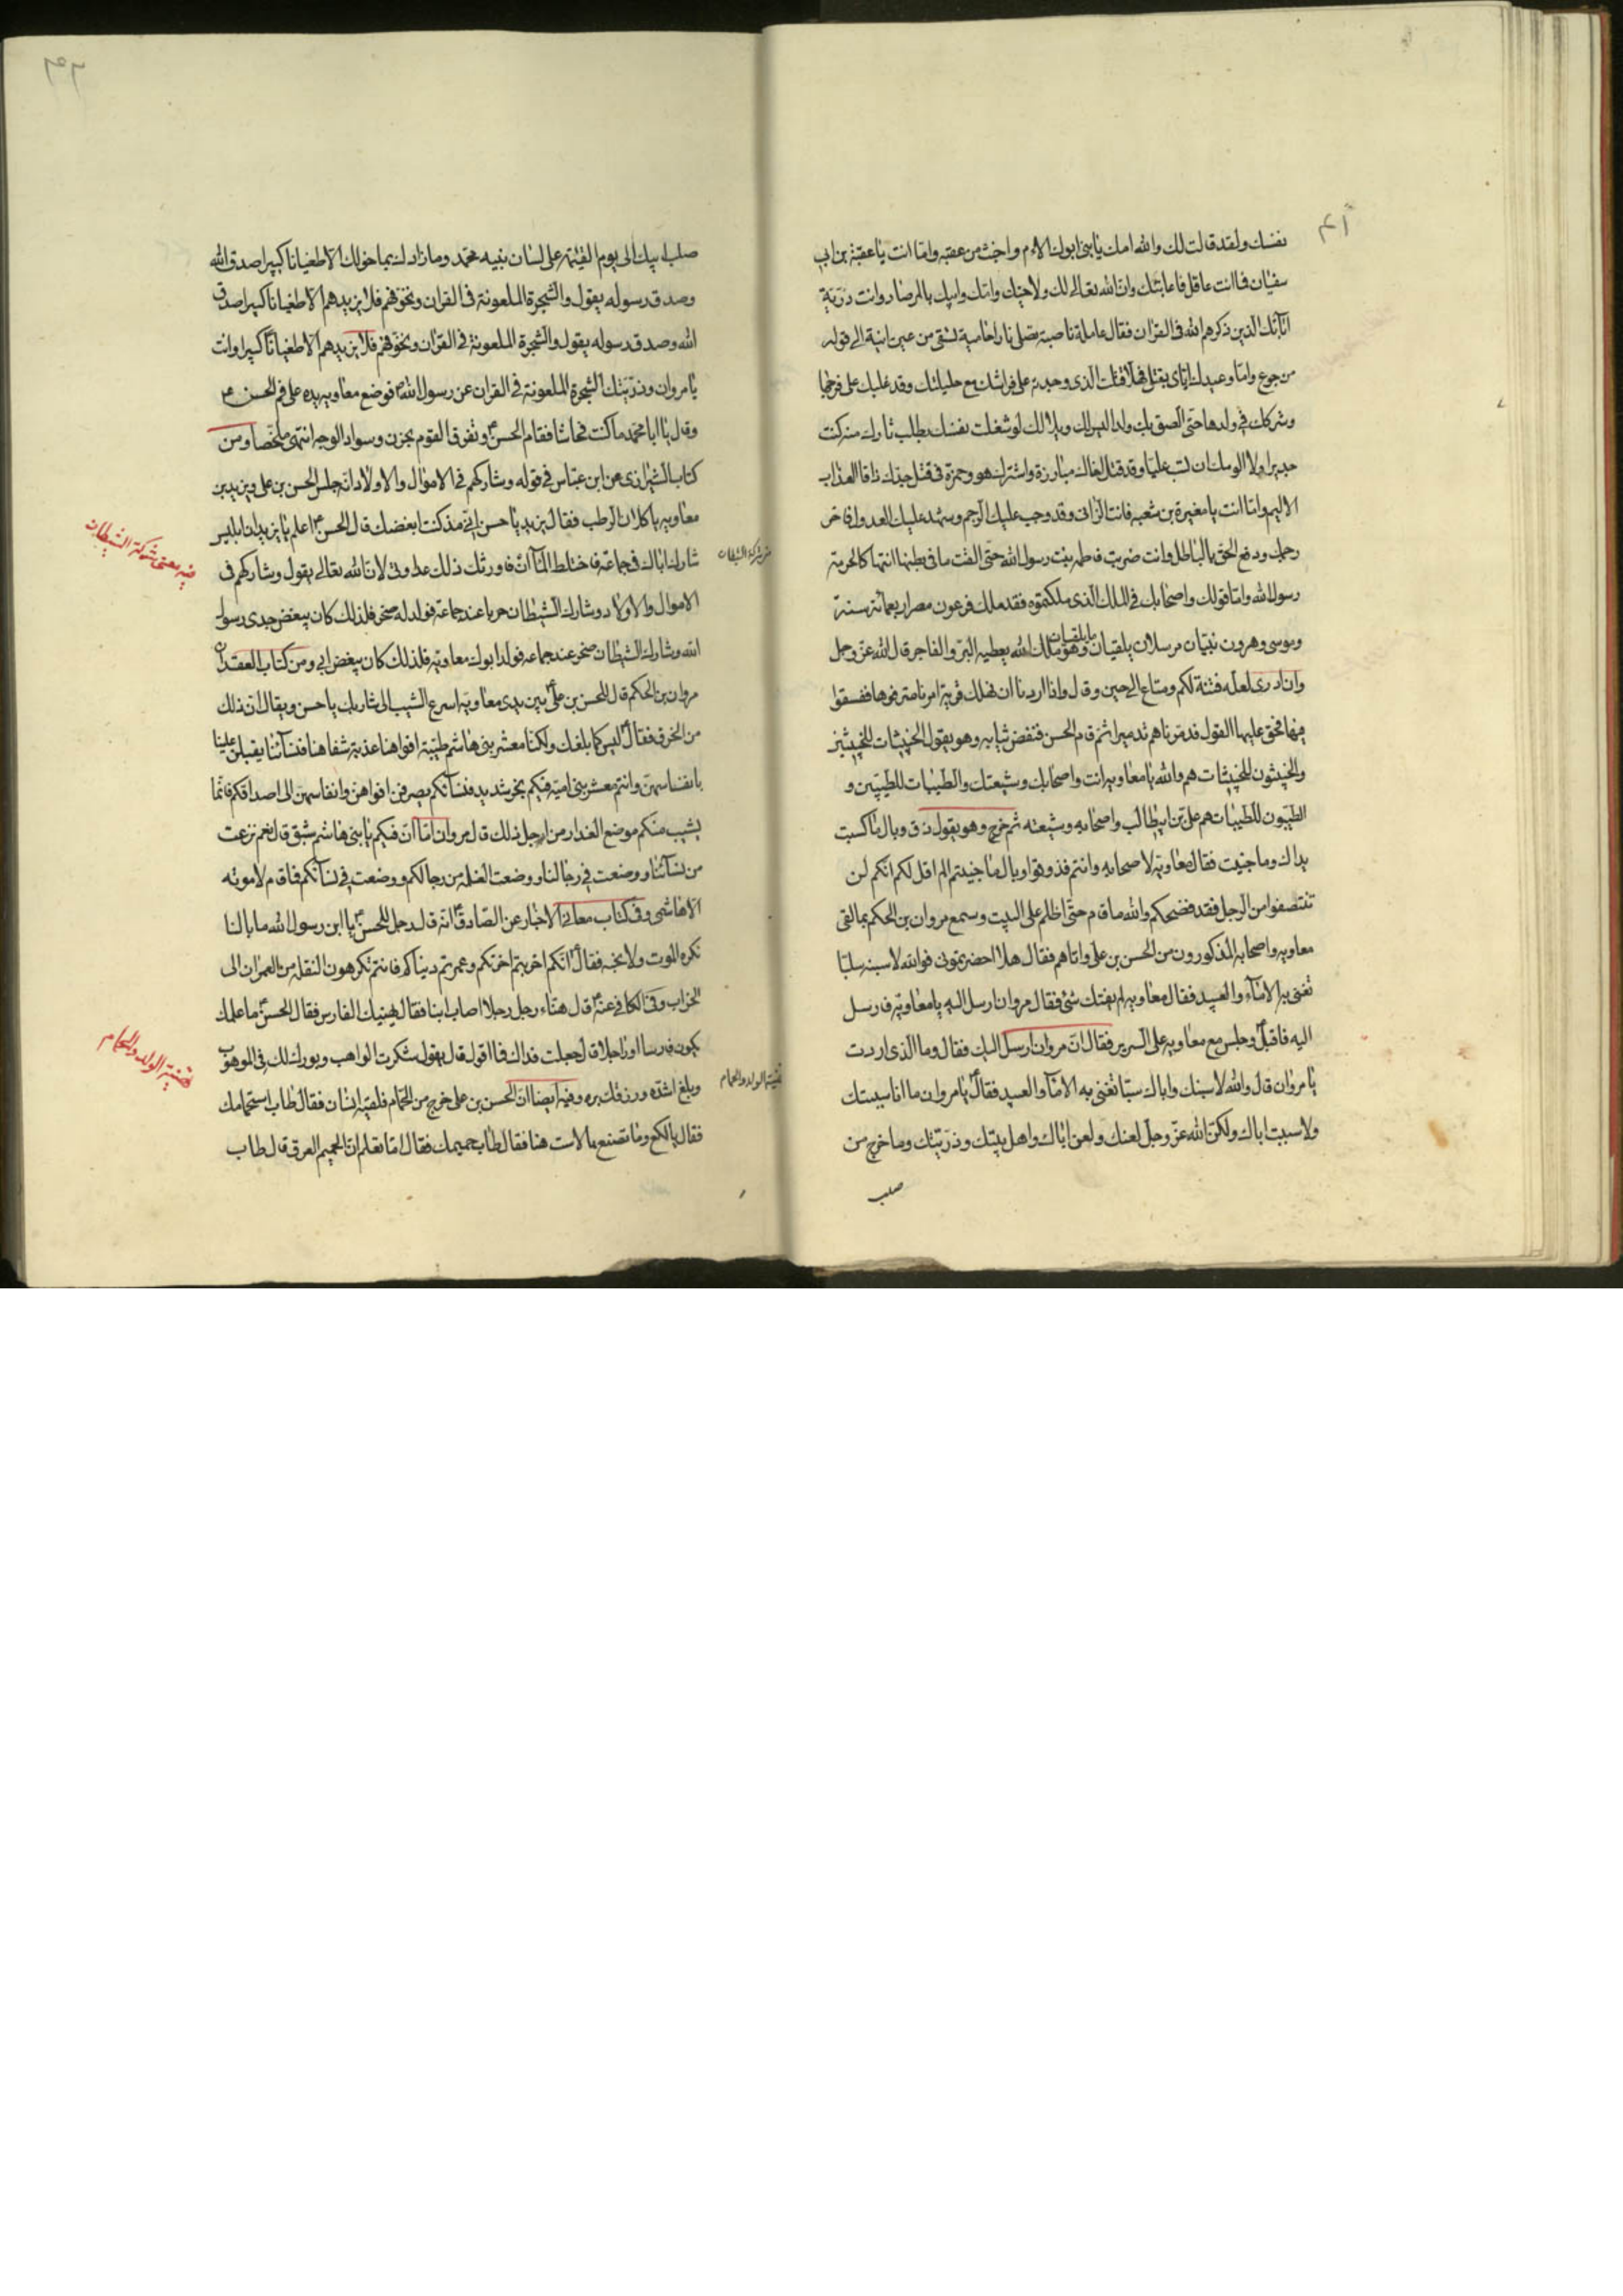 نفسك ولقد قالت لك والله امك يا بنى ابوك الام واخبث من عقبه واما انت يا عقبة بن ابى
سفيان فما انت بعاقل فاعاتبك وان الله تعالى لك ولاخيك وامك وابيك بالمرصاد وانت ذرية
آبائك الذين ذكرهم الله فى القران فقال عاملة ناصبة تصلى نارا حامية تسقى من عين انية الى قوله
من جوع واما وعيدك اياى بقتلى فهلا قتلت الذى وجدته على فراشك مع حليلتك وقد غلبك على فرجها
وشركك فى ولدها حتى الصق بك ولدا ليس لك ويلا لك لو شغلت نفسك بطلب ثارك منه كنت
جديرا ولا الومك ان تسب عليا وقد قتل اخاك مبارزة واشترك هو وحمزة فى قتل جدك ذاقا العذاب
الاليم واما انت يا مغيرة بن شعبه فانت الزانى وقد وجب عليك الرجم وشهد عليك العدول فاخر
رجمك ودفع الحق بالباطل وانت ضربت فاطمه بنت رسول الله حتى القت ما فى بطنها انتهاكا لحرمة
رسول الله واما قولك واصحابك فى الملك الذى ملكتموه فقد ملك فرعون مصر اربعمائة سنة
وموسى وهرون نبيان مرسلان يلقيان ما يلقيان وهو ملك الله يعطيه البر والفاجر قال الله عز وجل
وان ادرى لعله فتنة لكم ومتاع الى حين وقال واذا اردنا ان نهلك قرية امرنا مترفيها ففسقوا
فيها فحق عليها القول فدمرناهم تدميرا ثم قام الحسن فنفض ثيابه وهو يقول الخبيثات للخبيثين
والخبيثون للخبيثات هم والله يا معاويه انت واصحابك وشيعتك والطيبات للطيبين و
الطيبون للطيبات هم على بن ابيطالب واصحابه وشيعته ثم خرج وهو يقول ذق وبال ما كسبت
يداك وما جنيت فقال معاوية لاصحابه وانتم فذوقوا وبال ما جنيتم الم اقل لكم انكم لن
تنتصفوا من الرجل فقد فضحكم والله ما قام حتى اظلم على البيت وسمع مروان بن الحكم بما لقى
معاويه واصحابه المذكورون من الحسن بن على واتاهم فقال هلا احضرتمونى فوالله لاسبنه سبا
تغنى به الامآء والعبيد فقال معاويه لم يفتك شئ فقال مروان ارسل اليه يا معاويه فارسل
اليه فاقبل وجلس مع معاويه على السرير فقال ان مروان ارسل اليك فقال وما الذى اردت
يا مروان قال والله لاسبنك واباك سبا تغنى به الامآء والعبيد فقال يا مروان ما انا سببتك
ولا سببت اباك ولكن الله عز وجل لعنك ولعن اباك واهل بيتك وذريتك وما خرج من
صلب
صلب ابيك الى يوم القيمة على لسان نبيه محمد وما زادك بما خولك الا طغيانا كبيرا صدق الله
وصدق رسوله يقول والشجرة الملعونة فى القران ونخوفهم فلا يزيدهم الا طغيانا كبيرا صدق
الله وصدق رسوله يقول والشجرة الملعونة فى القران ونخوفهم فلا يزيدهم الا طغيانا كبيرا وانت
يا مروان وذريتك الشجرة الملعونة فى القران عن رسول الله فوضع معاويه يده على فم الحسن ع
وقال يا ابا محمد ما كنت فحاشا فقام الحسن وتفرق القوم بحزن وسواد الوجه انتهى ملخصا ومن
كتاب الشيرازى عن ابن عباس فى قوله وشاركهم فى الاموال والاولاد انه جلس الحسن بن على ويزيد بن
معاويه ياكلان الرطب فقال يزيد يا حسن انى مذ كنت ابغضك قال الحسن اعلم يا يزيد ان ابليس
شارك اباك فى جماعه فاختلط المآآن فاورثك ذلك عداوتى لان الله تعالى يقول وشاركهم فى
الاموال والاولاد وشارك الشيطان حربا عند جماعه فولد له صخر فلذلك كان يبغض جدى رسول
الله وشارك الشيطان صخر عند جماعه فولد ابوك معاويه فلذلك كان يبغض ابى ومن كتاب العقد ان
مروان بن الحكم قال للحسن بن على بين يدى معاويه اسرع الشيب الى شاربك يا حسن ويقال ان ذلك
من الخرق فقال ليس كما بلغك ولكنا معشر بنى هاشم طيبة افواهنا عذبة شفاهنا فنسآئنا يقبلن علينا
بانفساسهن وانتم معشر بنى اميه فيكم بخر شديد فنسآئكم يصرفن افواهن وانفاسهن الى اصداغكم فانما
يشيب منكم موضع العذار من اجل ذلك قال مروان اما ان فيكم يا بنى هاشم شبق قال نعم نزعت
من نسآئنا ووضعت فى رجالنا ووضعت الغلمه من رجالكم ووضعت فى نسآئكم فما قام لامويه
الا هاشمى وفى كتاب معانى الاخبار عن الصادق انه قال رجل للحسن يا ابن رسول الله ما بالنا
نكره الموت ولا نحبه فقال انكم اخربتم اخرتكم وعمرتم دنياكم فانتم تكرهون النقله من العمران الى
الخراب وفى الكافى عنه قال هناء رجل رجلا اصاب ابنا فقال يهنيك الفارس فقال الحسن ما علمك
يكون فارسا او راجلا قال جعلت فداك فما اقول قال يقول شكرت الواهب وبورك لك فى الموهوب
وبلغ اشده ورزقك بره وفيه ايضا ان الحسن بن على خرج من الحمام فلقيه انسان فقال طاب استحمامك
فقال يا لكع وما تصنع بالاست هنا فقال طاب حميمك فقال اما تعلم ان الحميم العرق قال طاب
فيه معنى شركة الشيطان
تهنية الولد والحمام